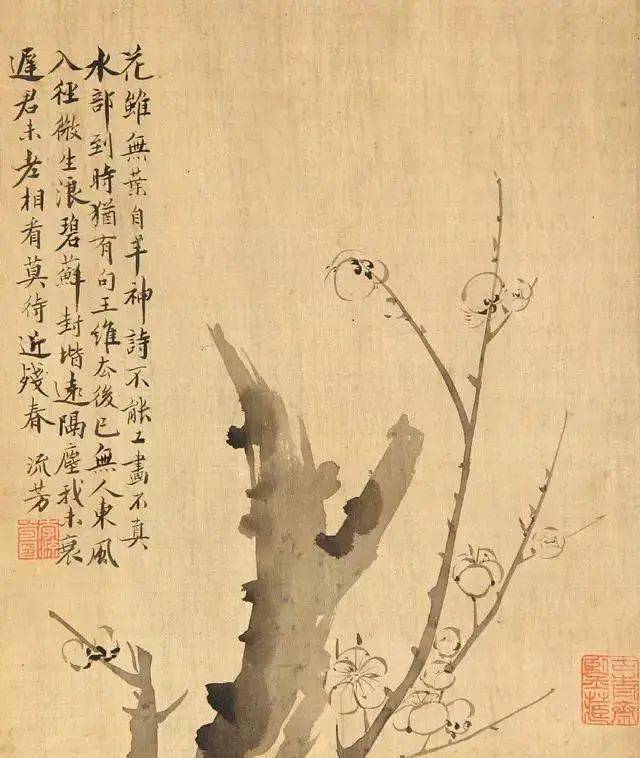 花雖無葉自丰神詩不能工畫不真
水部到時猶有句王維去後已無人東風
入徑微生浪碧蘚封堦遠隔塵我未衰
遲君未老相看莫待近殘春 流芳